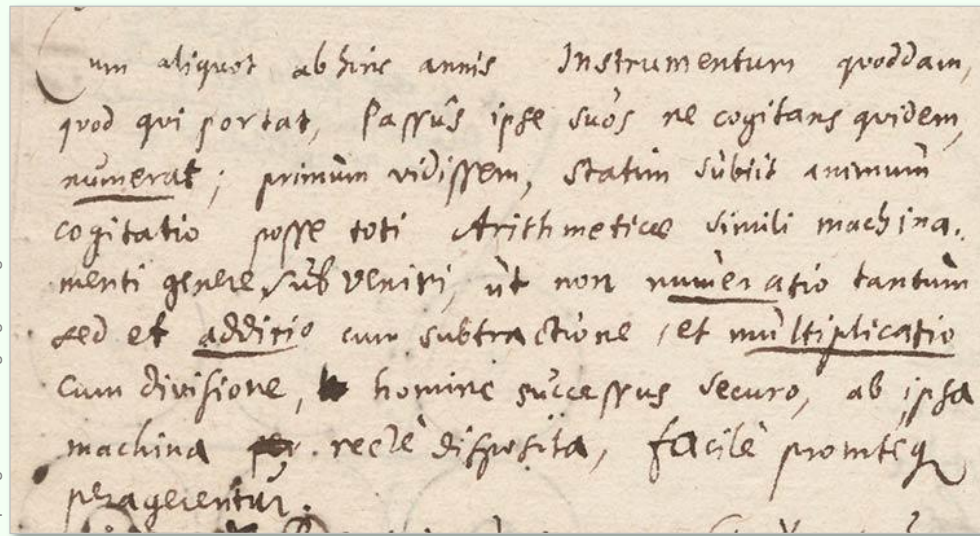 Cum aliquot abhinc annis Instrumentum quoddam,
quod qui portat, Passûs ipse suos ne cogitans quidem,
numerat; primùm vidissem, statim subiit animum
cogitatio posse toti Arithmeticæ simili machina-
menti genere subveniri, ut non numeratio tantùm
sed et additio cum subtractione, et multiplicatio
cum divisione, homine successus securo, ab ipsa
machina rectè disposita, facilè promteq
peragerentur.